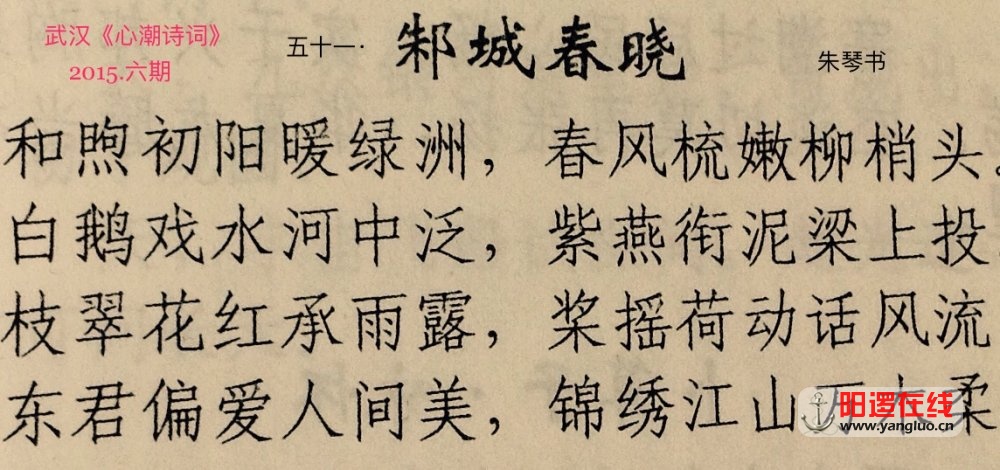 武汉《心潮诗词》
2015.六期
五十一· 邾城春晓 朱琴书
和煦初阳暖绿洲，春风梳嫩柳梢头。
白鹅戏水河中泛，紫燕衔泥梁上投
枝翠花红承雨露，桨摇荷动话风流
东君偏爱人间美，锦绣江山万 柔
阳逻在线
www.yangluo.cn